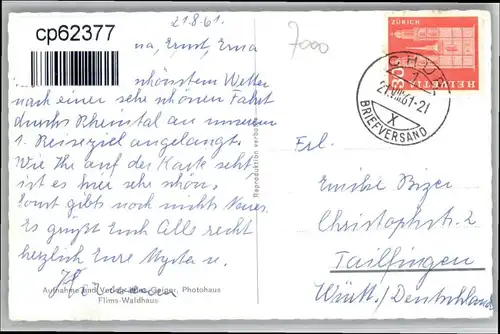 21.8.61.
cp62377
na, Ernst, Erna
schönstem Wetter
nach einer sehr schönen Fahrt
durchs Rheintal an unserem
1. Reiseziel angelangt.
Wie Ihr auf der Karte seht
ist es hier sehr schön.
Sonst gibt noch nichts Neues.
Es grüßt Euch Alle recht
herzlich Eure
Aufnahme und Verlag Geiger, Photohaus
Flims-Waldhaus
Reproduktion verboten
7000
ZÜRICH
30
HELVETIA
CHUR
1
21.VIII.61-21
X
BRIEFVERSAND
Frl.
Emilie Bizer
Christophstr. 2
Tailfingen
Württ./Deutschland.